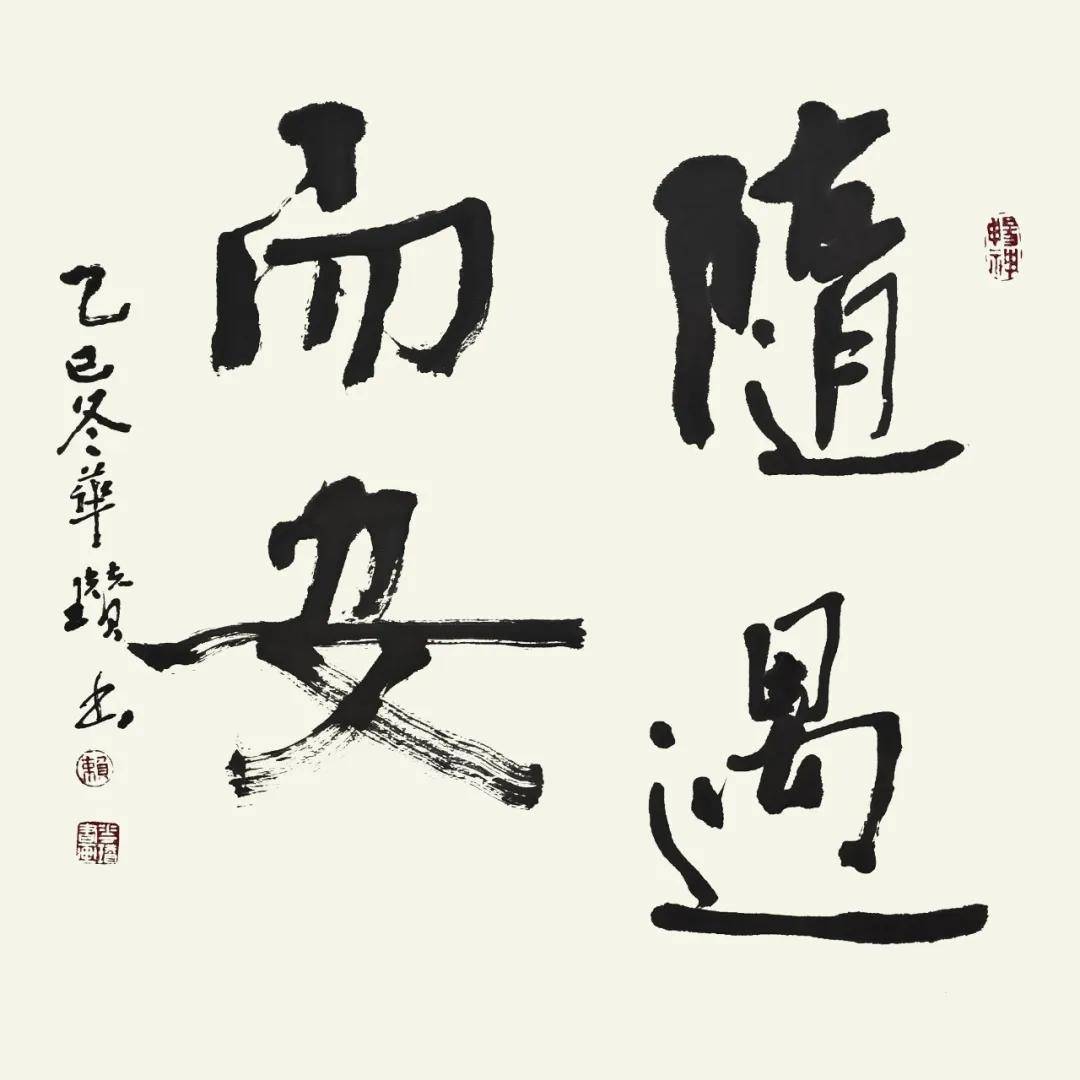 隨遇
而安
乙巳冬華瓚书
賴